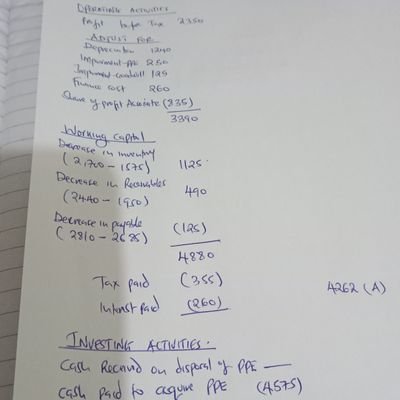 OPERATING ACTIVITIES
Profit before Tax 2350
ADJUST FOR
Depreciation 1240
Impairment-PPE 250
Impairment-Goodwill 125
Finance cost 260
Share of profit Associate (835)
3390
Working capital
Decrease in inventory
(2,700 - 1575) 1125
Decrease in Receivables
(2440 - 1950) 490
Decrease in payable
(2810 - 2685) (125)
4880
Tax paid (355)
Interest paid (260)
4262 (A)
INVESTING ACTIVITIES.
Cash Received on disposal of PPE —
Cash paid to acquire PPE (4575)